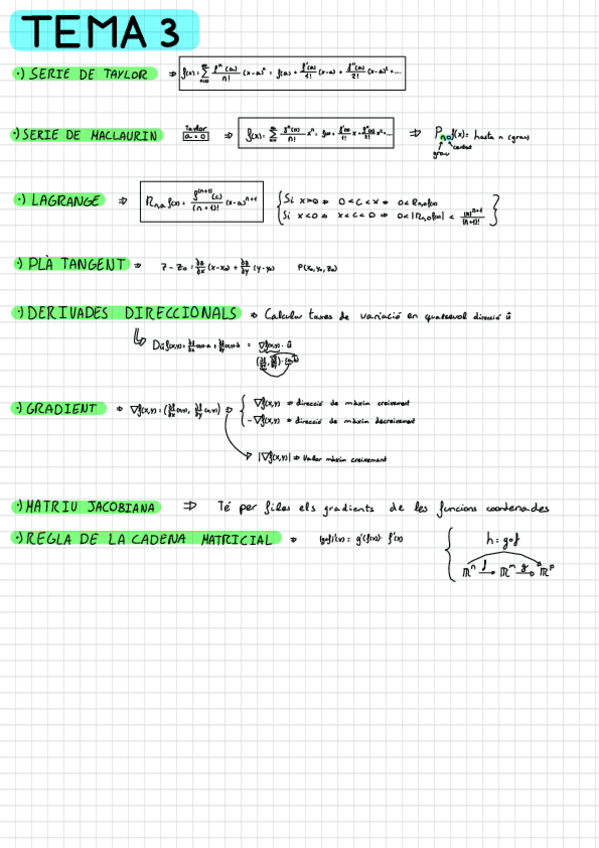 TEMA 3
·) SERIE DE TAYLOR ⇒ f(x) = ∑_{n=0}^{∞} fⁿ(a)/n! (x-a)ⁿ = f(a) + f'(a)/1! (x-a) + f''(a)/2! (x-a)² + ...
·) SERIE DE MACLAURIN Taylor a=0 ⇒ f(x) = ∑_{n=0}^{∞} fⁿ(0)/n! xⁿ = f(0) + f'(0)/1! x + f''(0)/2! x² + ... ⇒ P_{n,0} f(x) = hasta n
grau
·) LAGRANGE ⇒ R_{n,a} f(x) = f^{(n+1)}(c)/(n+1)! (x-a)^{n+1}
Si x>0 ⇒ 0<c<x ⇒ 0< R_{n,0} f(x)
Si x<0 ⇒ x<c<0 ⇒ 0<|R_{n,0} f(x)| < |x|^{n+1}/(n+1)!
·) PLÀ TANGENT ⇒ z - z₀ = ∂z/∂x (x-x₀) + ∂z/∂y (y-y₀) P(x₀, y₀, z₀)
·) DERIVADES DIRECCIONALS ⇒ Calcular taxes de variació en qualsevol direcció û
Dûf(x,y) = ∂f/∂x (x,y)·a + ∂f/∂y (x,y)·b = ∇f(x,y) · û
(∂f/∂x, ∂f/∂y) · (a,b)
·) GRADIENT ⇒ ∇f(x,y) = (∂f/∂x (x,y), ∂f/∂y (x,y)) ⇒
∇f(x,y) ⇒ direcció de màxim creixement
-∇f(x,y) ⇒ direcció de màxim decreixement
|∇f(x,y)| ⇒ Valor màxim creixement
·) MATRIU JACOBIANA ⇒ Té per files els gradients de les funcions coordenades
·) REGLA DE LA CADENA MATRICIAL ⇒ (g∘f)'(x) = g'(f(x)) · f'(x)
h = g∘f
ℝⁿ f→ ℝᵐ g→ ℝᵖ